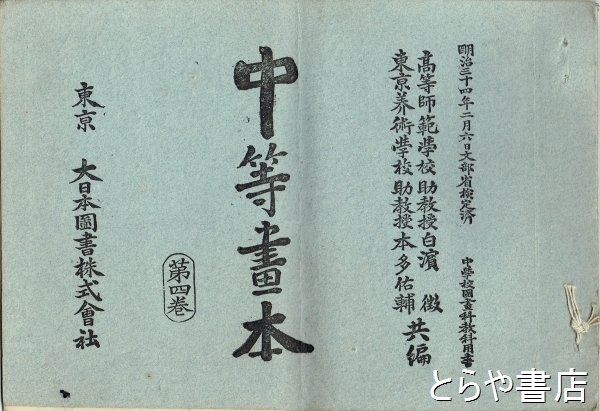 明治三十四年二月六日文部省検定済 中學校圖畫科教科用書
高等師範學校助教授白濱徴
東京美術學校助教授本多佑輔
共編
中等畫本
第四巻
東京 大日本圖書株式會社
とらや書店